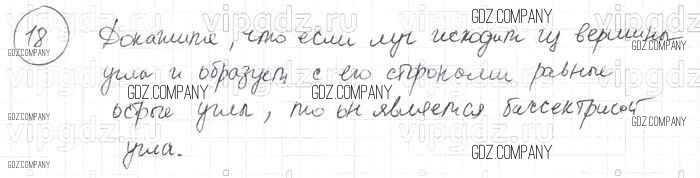 18 Докажите, что если луч исходит из вершины
угла и образует с его сторонами равные
острые углы, то он является биссектрисой
угла.
GDZ.COMPANY
GDZ.COMPANY
GDZ.COMPANY
GDZ.COMPANY
GDZ.COMPANY
GDZ.COMPANY
GDZ.COMPANY
GDZ.COMPANY
GDZ.COMPANY